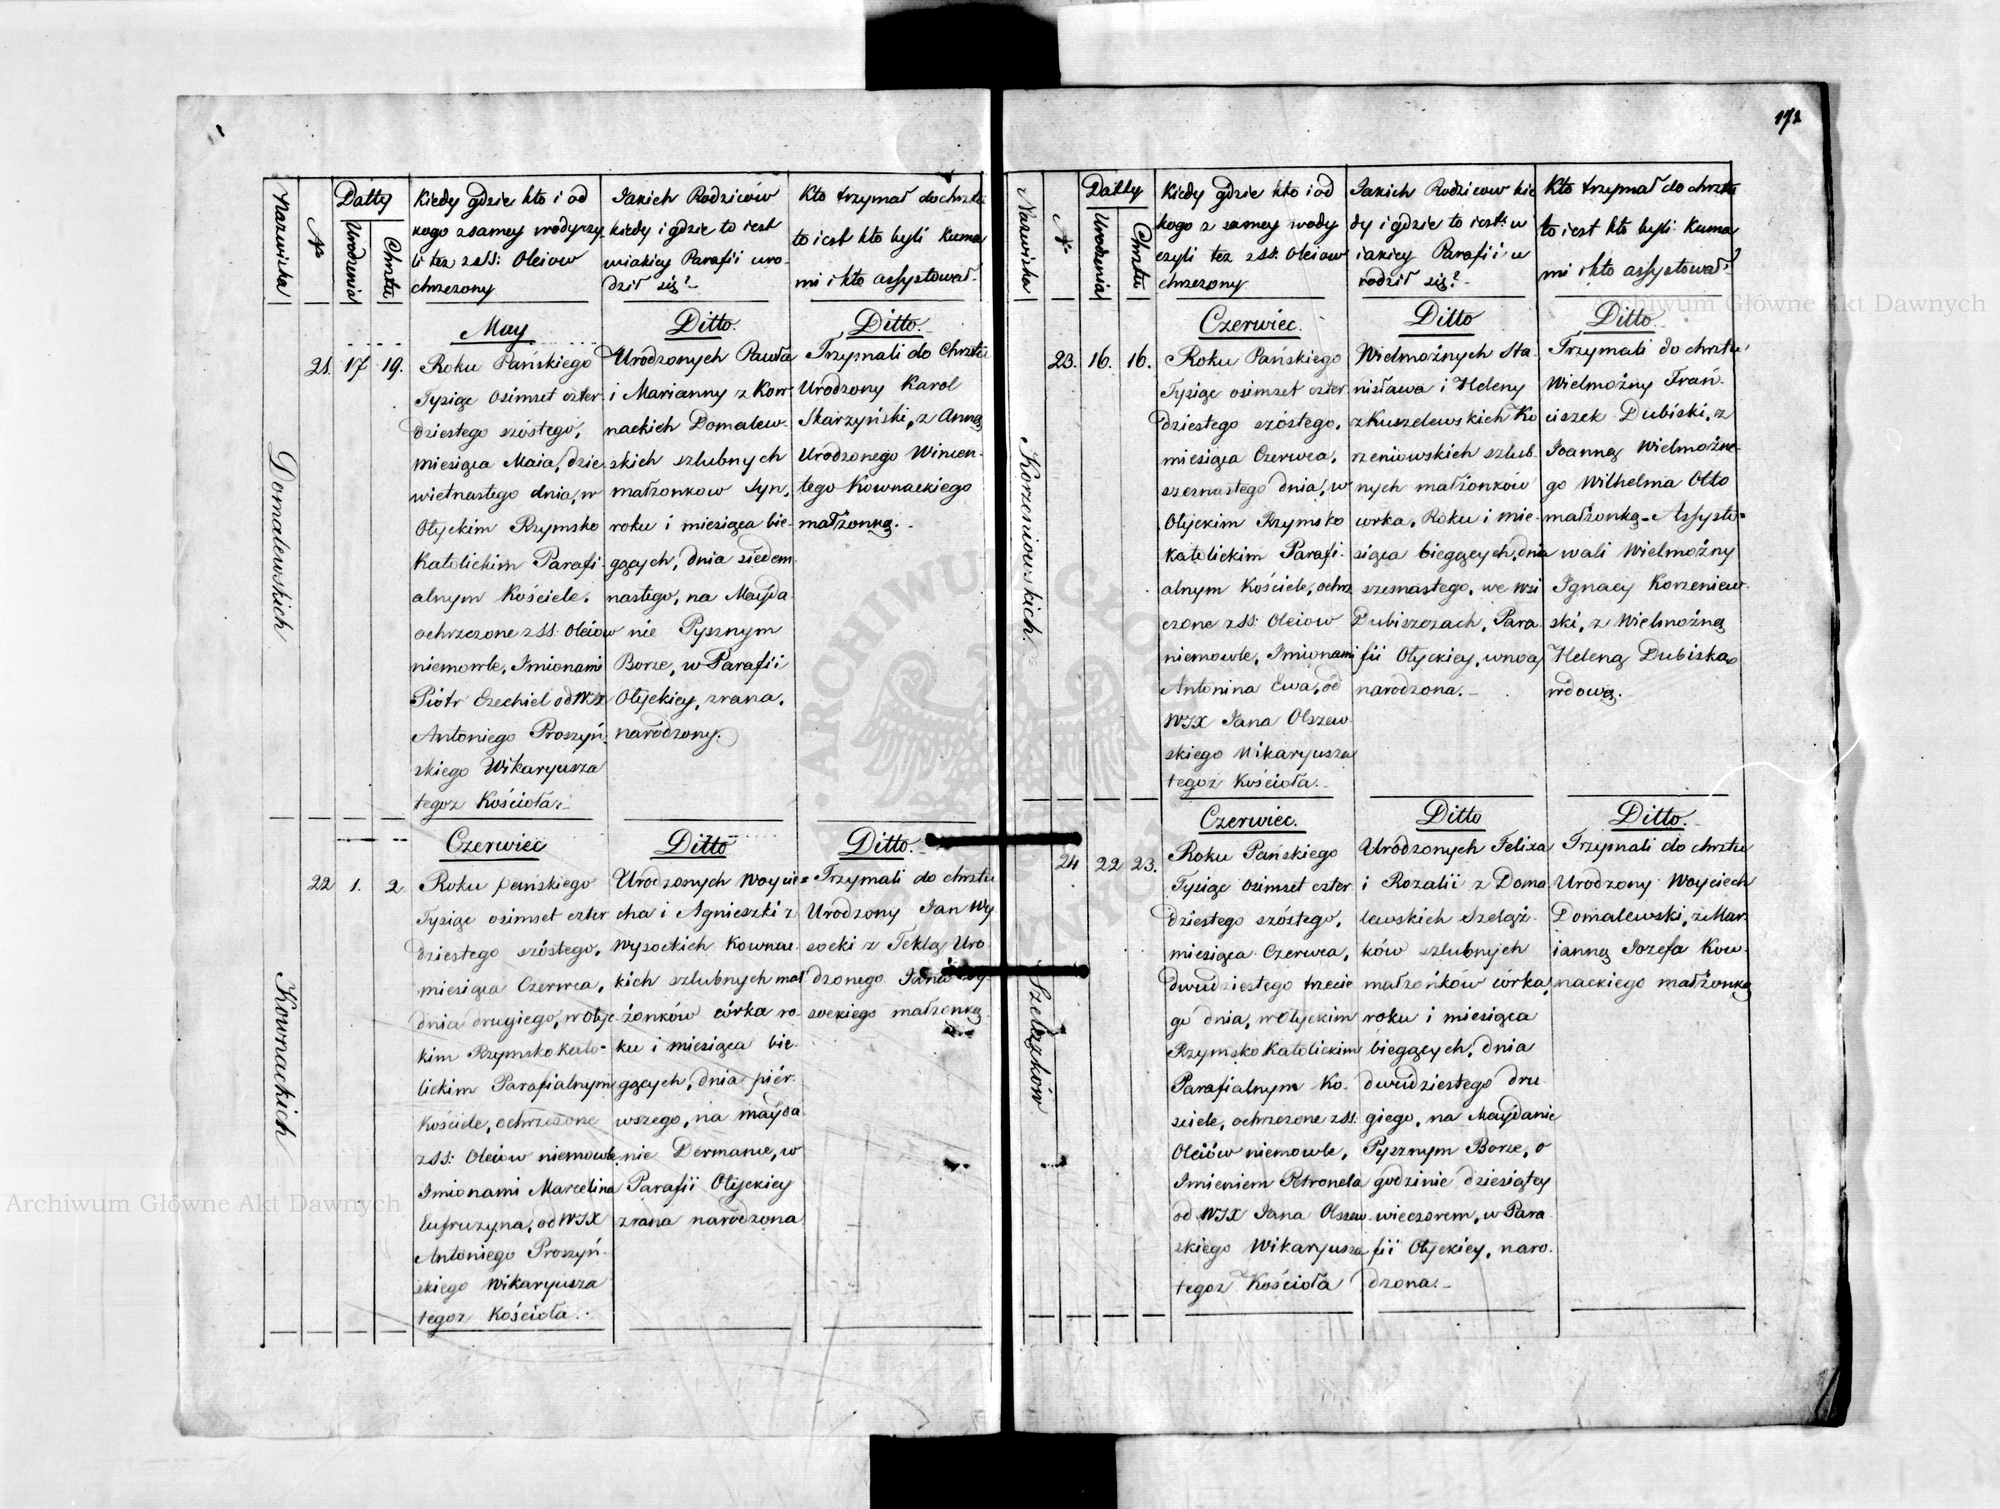 172
Nazwiska
N°
Datty
Urodzenia
Chrztu
Kiedy gdzie kto i od
kogo z samey wody czy
li tez z SS: Oleiow
chrzczony
Jakich Rodziców
kiedy i gdzie to iest
w iakiey Parafii uro-
dził się?
Kto trzymał do chrztu
to iest kto byli Kuma
mi i kto assystował
Domalewskich
21. 17 19.
May
Roku Pańskiego
Tysiąc osimset czter
dziestego szóstego,
miesiąca Maia, dzie
wietnastego dnia, w
Ołyckim Rzymsko
Katolickim Parafi-
alnym Kościele,
ochrzczone z SS: Oleiow
niemowle, Imionami
Piótr Ezechiel od WJX
Antoniego Proszyń-
skiego Wikaryusza
tegoz Kościoła.
Ditto.
Urodzonych Pawła
i Marianny z Kow-
nackich Domalew-
skich szlubnych
małzonkow syn,
roku i miesiąca bie-
gących, dnia siedem
nastego, na Mayda
nie Pysznym
Borze, w Parafii
Ołyckiey, zrana,
narodzony.
Ditto.
Trzymali do Chrztu
Urodzony Karol
Skarzyński, z Anną
Urodzonego Wincen-
tego Kownackiego
małżonką.
Kownackich
22 1. 2.
Czerwiec
Roku pańskiego
Tysiąc osimset czter
dziestego szóstego,
miesiąca Czerwca,
dnia drugiego, w Ołyc-
kim Rzymsko Kato-
lickim Parafialnym
Kościele, ochrzczone
z SS: Oleiow niemowle,
Imionami Marcelina
Eufruzyna, od WJX
Antoniego Proszyń-
skiego Wikaryusza
tegoz Kościoła.
Ditto
Urodzonych Woycie=
cha i Agnieszki z
Wysockich Kownac
kich szlubnych mał
żonków córka ro-
ku i miesiąca bie-
gących, dnia piér-
wszego, na mayda
nie Dermanie, w
Parafii Ołyckiey
zrana narodzona
Ditto.
Trzymali do chrztu
Urodzony Jan Wy
socki z Teklą Uro
dzonego Jana Wy
sockiego małzonką.
Nazwiska
N°
Datty
Urodzenia
Chrztu
Kiedy gdzie kto i od
kogo z samey wody
czyli tez z SS. Oleiow
chrzczony
Jakich Rodzicow kie
dy i gdzie to iest: w
iakiey Parafii u
rodził się?
Kto trzymał do chrztu
to iest kto byli Kuma
mi i kto assystował?
Korzeniowskich.
23. 16. 16.
Czerwiec.
Roku Pańskiego
Tysiąc osimset czter
dziestego szóstego,
miesiąca Czerwca,
szesnastego dnia, w
Ołyckim Rzymsko
katolickim Parafi-
alnym Kościele, ochrz
czone z SS: Oleiow
niemowle, Imionami
Antonina Ewa, od
WJX Jana Olszew-
skiego Wikaryusza
tegoz Kościoła.
Ditto
Wielmożnych Sta
nisława i Heleny
z Kuszelewskich Ko
rzeniowskich szlub-
nych małżonków
corka, Roku i mie-
siąca bieggcych, dnia
szesnastego, we wsi
Dubiszczach, Para
fii Ołyckiey, w nocy
narodzona.
Ditto.
Trzymali do chrztu
Wielmożny Fran-
ciszek Dubiski, z
Joanną Wielmożne-
go Wilhelma Otto
małżonką. Assysto=
wali Wielmożny
Ignacy Korzeniew-
ski, z Wielmożną
Heleną Dubiską
wdową.
Szelązków
24 22 23.
Czerwiec.
Roku Pańskiego
Tysiąc osimset czter
dziestego szóstego,
miesiąca Czerwca,
dwudziestego trzecie
go dnia, w Ołyckim
Rzymsko Katolickim
Parafialnym Ko-
sciele, ochrzczone z SS:
Oleiów niemowle,
Imieniem Petronela
od WJX Jana Olszew-
skiego Wikaryusza
tegoz Kościoła
Ditto
Urodzonych Felixa
i Rozalii z Doma
lewskich Szeląż-
ków szlubnych
małzonków córka,
roku i miesiąca
biegących, dnia
dwudziestego dru
giego, na Maydanie
Pysznym Borze, o
godzinie dziesiątey
wieczorem, w Para
fii Ołyckiey, naro-
dzona.
Ditto.
Trzymali do chrztu
Urodzony Woyciech
Domalewski, z Mar-
ianną Jozefa Kow-
nackiego małżonką
Archiwum Główne Akt Dawnych
Archiwum Główne Akt Dawnych